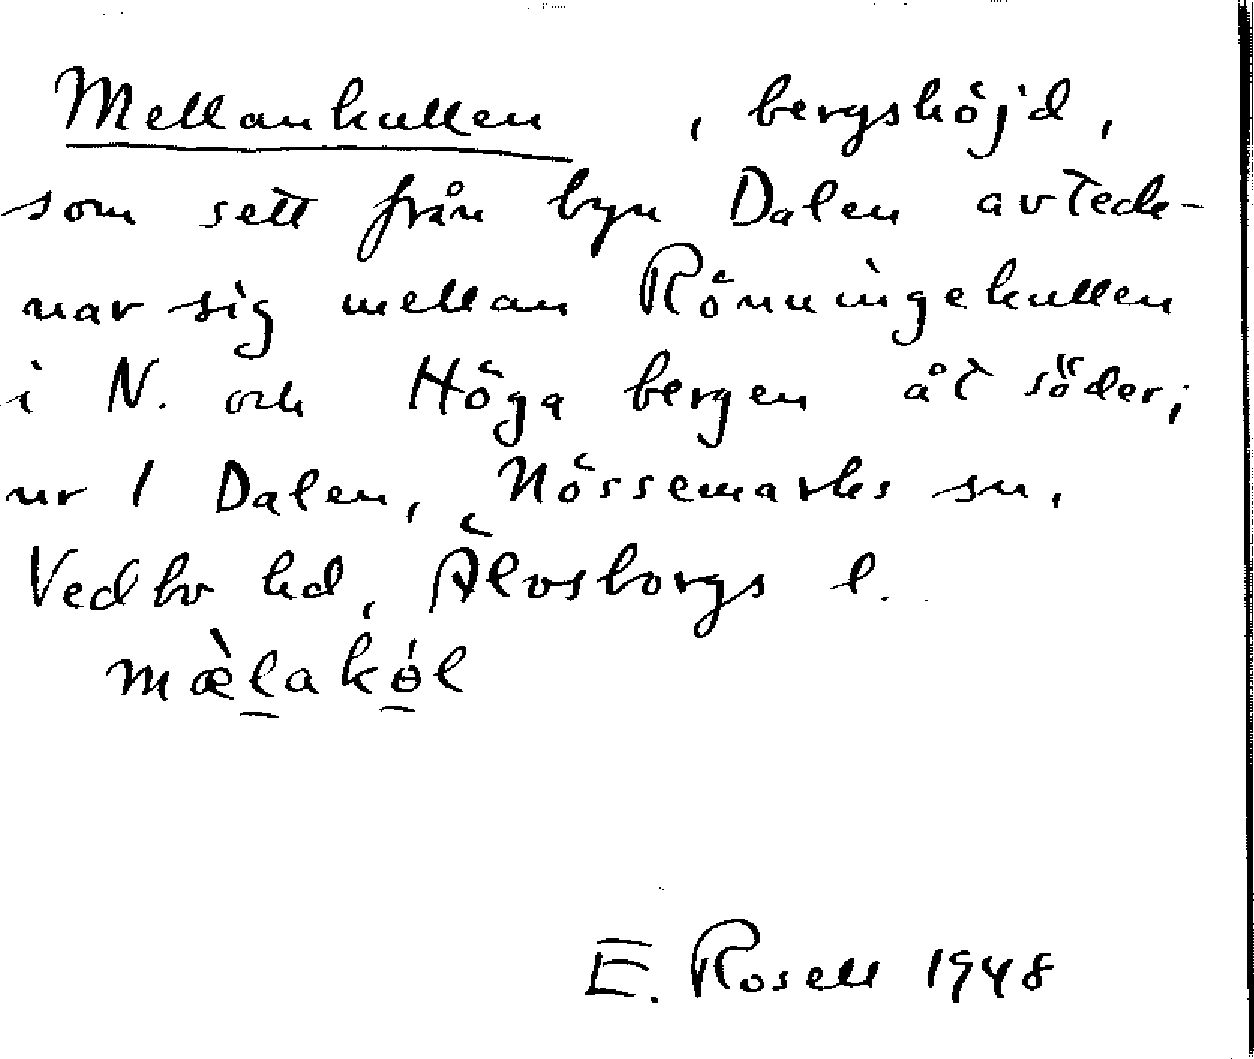 Mellankullen , bergshöjd,
som sett från byn Dalen avteck-
nar sig mellan Rönningekullen
i N. och Höga bergen åt söder;
nr 1 Dalen, Nössemarks sn,
Vedbo hd, Älvsborgs l.
mæ̀l̠akɵ̠́l
E. Rosell 1948